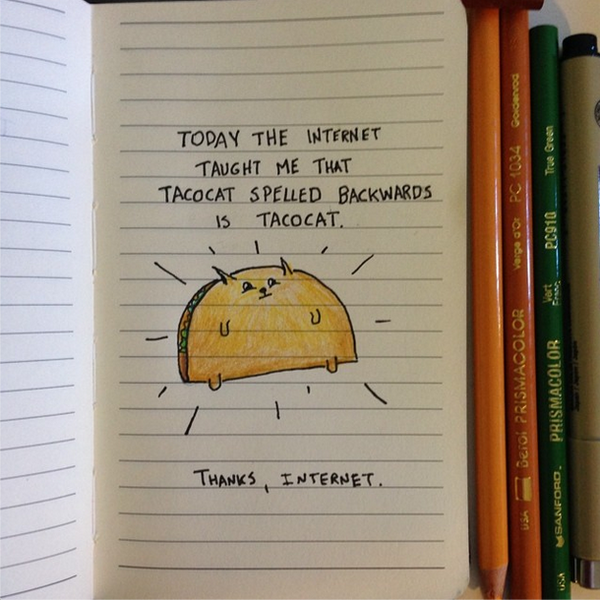 TODAY THE INTERNET
TAUGHT ME THAT
TACOCAT SPELLED BACKWARDS
IS TACOCAT.
THANKS, INTERNET.
USA Berol PRISMACOLOR Verge d'Or PC 1034 Goldenrod
USA SANFORD. PRISMACOLOR Vert PC910 True Green